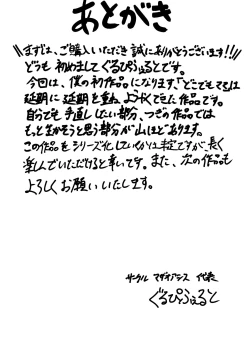 あとがき
まずは、ご購入いただき誠にありがとうございます!!
どうも初めましてぐるぴっふぇるとです。
今回は、僕の初作品になります「どこでもてるは
延期に延期を重ね、ようやくできた作品です。
自分でも手直ししたい部分、つぎの作品では
もっと生かそうと思う部分が山ほどあります。
この作品をシリーズ化していくかは未定ですが、長く
楽しんでいただけると幸いです。また、次の作品も
よろしくお願いいたします。
サークル マザイアシス 代表
ぐるぴっふぇると